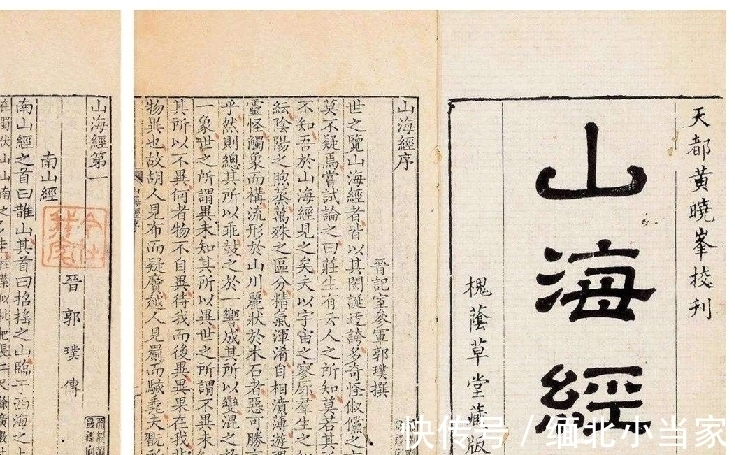 天都黄曉峯挍刊
山海經
槐蔭草堂藏版
山海經序
晉記室參軍郭璞撰
世之覽山海經者皆以其閎誕迂誇多奇怪俶儻之
莫不疑焉嘗試論之曰莊生有云人之所知莫若其
不知吾於山海經見之矣夫以宇宙之寥廓羣生之
紜陰陽之煦蒸萬殊之區分精氣渾淆自相濆薄遊
靈怪觸象而構流形於山川麗狀於木石者惡可勝
乎然則總其所以乖鼓之於一響成其所以變混之
一象世之所謂異未知其所以異世之所謂不異未
其所以不異何者物不自異待我而後異異果在我
物異也故胡人見布而疑黂越人見罽而駭毳夫翫
山海經第一
南山經
晉郭璞傳
南山經之首曰䧿山其首曰招搖之山臨于西海之
快传号/缅北小当家